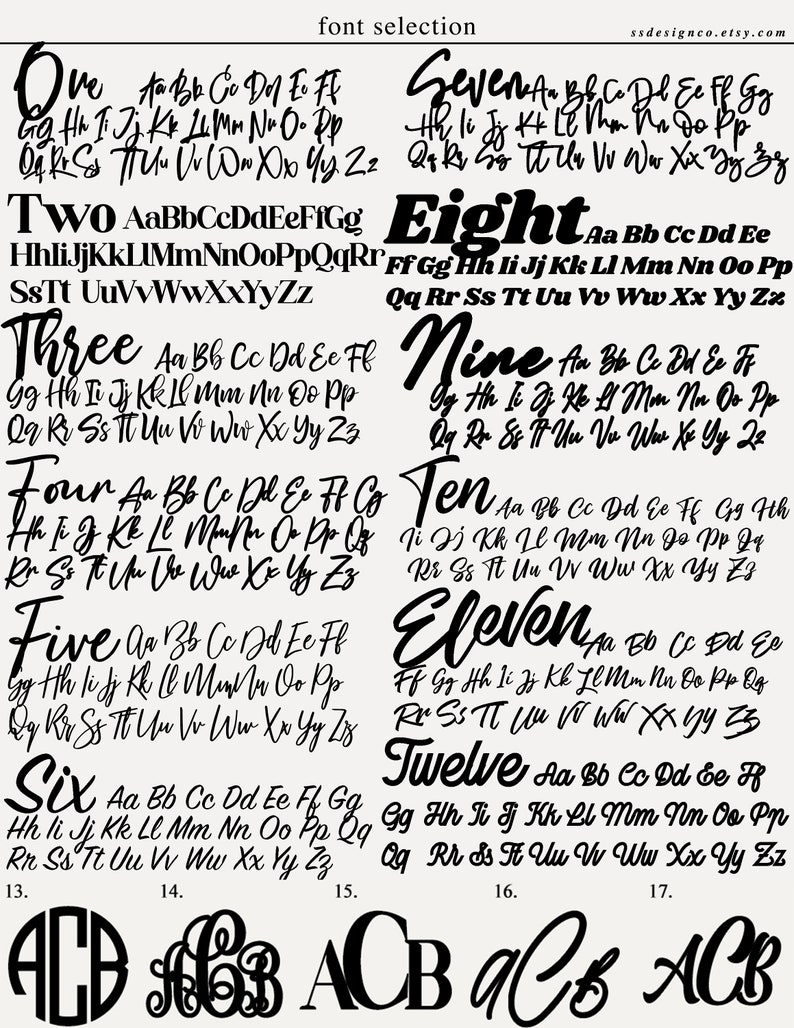 font selection
ssdesignco.etsy.com
One Aa Bb Cc Dd Ee Ff
Gg Hh Ii Jj Kk Ll Mm Nn Oo Pp
Qq Rr Ss Tt Uu Vv Ww Xx Yy Zz
Two AaBbCcDdEeFfGg
HhIiJjKkLlMmNnOoPpQqRr
SsTt UuVvWwXxYyZz
Three Aa Bb Cc Dd Ee Ff
Gg Hh Ii Jj Kk Ll Mm Nn Oo Pp
Qq Rr Ss Tt Uu Vv Ww Xx Yy Zz
Four Aa Bb Cc Dd Ee Ff Gg
Hh Ii Jj Kk Ll MmNn Oo Pp Qq
Rr Ss Tt Uu Vv Ww Xx Yy Zz
Five Aa Bb Cc Dd Ee Ff
Gg Hh Ii Jj Kk Ll MmNn Oo Pp
Qq Rr Ss Tt Uu Vv Ww Xx Yy Zz
Six Aa Bb Cc Dd Ee Ff Gg
Hh Ii Jj Kk Ll Mm Nn Oo Pp Qq
Rr Ss Tt Uu Vv Ww Xx Yy Zz
Seven Aa Bb Cc Dd Ee Ff Gg
Hh Ii Jj Kk Ll Mm Nn Oo Pp
Qq Rr Ss Tt Uu Vv Ww Xx Yy Zz
Eight Aa Bb Cc Dd Ee
Ff Gg Hh Ii Jj Kk Ll Mm Nn Oo Pp
Qq Rr Ss Tt Uu Vv Ww Xx Yy Zz
Nine Aa Bb Cc Dd Ee Ff
Gg Hh Ii Jj Kk Ll Mm Nn Oo Pp
Qq Rr Ss Tt Uu Vv Ww Xx Yy Zz
Ten Aa Bb Cc Dd Ee Ff Gg Hh
Ii Jj Kk Ll Mm Nn Oo Pp Qq
Rr Ss Tt Uu Vv Ww Xx Yy Zz
Eleven Aa Bb Cc Dd Ee
Ff Gg Hh Ii Jj Kk Ll Mm Nn Oo Pp Qq
Rr Ss Tt Uu Vv Ww Xx Yy Zz
Twelve Aa Bb Cc Dd Ee Ff
Gg Hh Ii Jj Kk Ll Mm Nn Oo Pp
Qq Rr Ss Tt Uu Vv Ww Xx Yy Zz
13. 14. 15. 16. 17.
ACB ACB ACB aCB ACB